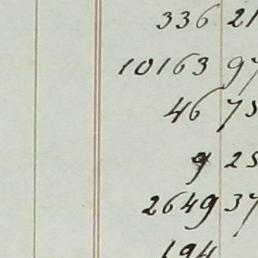 336 21
10163 97
46 75
9 25
2649 37
194